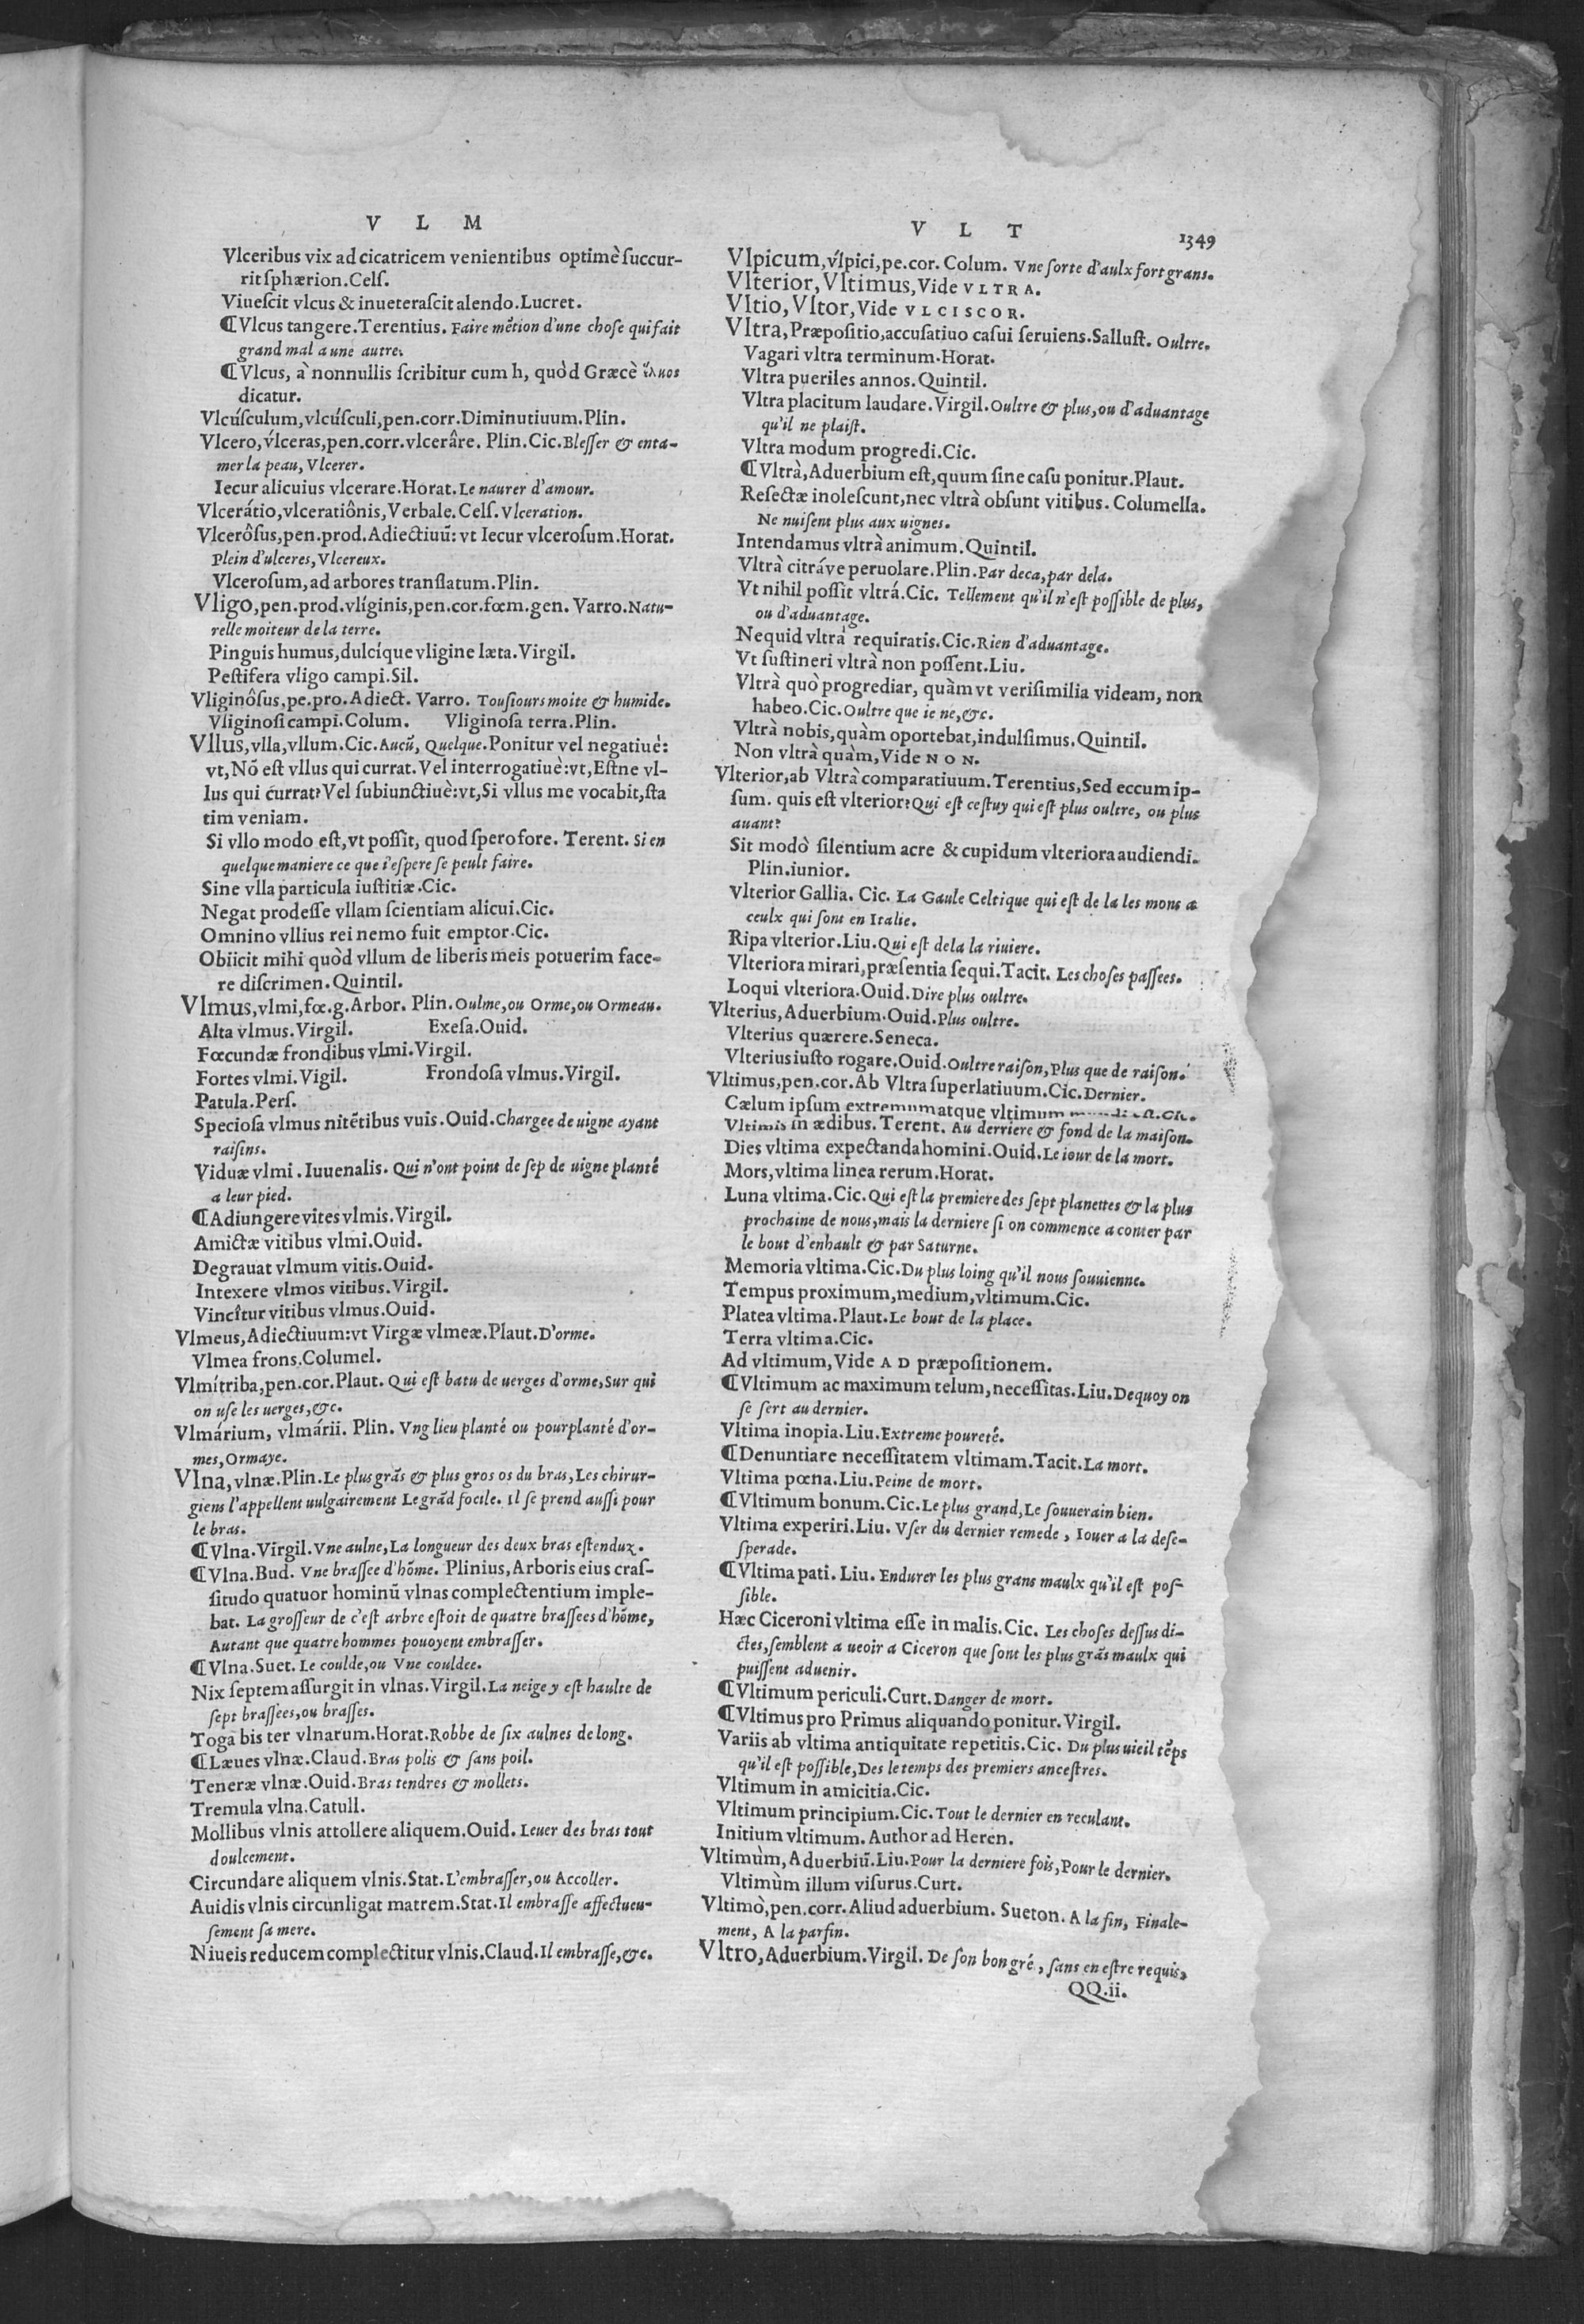 V L M
Vlceribus vix ad cicatricem venientibus optimè ſuccur-
rit ſphærion.Celſ.
Viueſcit vlcus & inueteraſcit alendo.Lucret.
¶Vlcus tangere.Terentius. Faire mẽtion d'une choſe qui fait
grand mal a une autre.
¶Vlcus, à nonnullis ſcribitur cum h, quòd Græcè
dicatur.
Vlcúſculum,vlcúſculi,pen.corr.Diminutiuum.Plin.
Vlcero,vĺceras,pen.corr.vlcerâre. Plin.Cic.Bleſſer & enta-
mer la peau, Vlcerer.
Iecur alicuius vlcerare.Horat.Le naurer d'amour.
Vlcerátio,vlceratiônis,Verbale.Celſ.Vlceration.
Vlcerôſus,pen.prod.Adiectiuũ: vt Iecur vlceroſum.Horat.
Plein d'ulceres,Vlcereux.
Vlceroſum,ad arbores tranſlatum.Plin.
Vligo,pen.prod.vlíginis,pen.cor.fœm.gen. Varro.Natu-
relle moiteur de la terre.
Pinguis humus,dulcíque vligine læta.Virgil.
Peſtifera vligo campi.Sil.
Vliginôſus,pe.pro.Adiect. Varro. Touſiours moite & humide.
Vliginoſi campi.Colum. Vliginoſa terra.Plin.
Vllus,vlla,vllum.Cic.Aucũ, Quelque.Ponitur vel negatiuè:
vt,Nõ eſt vllus qui currat.Vel interrogatiuè:vt,Eſtne vl-
lus qui currat?Vel ſubiunctiuè:vt,Si vllus me vocabit,ſta
tim veniam.
Si vllo modo eſt,vt poſſit, quod ſpero fore. Terent. Si en
quelque maniere ce que i'eſpere ſe peult faire.
Sine vlla particula iuſtitiæ.Cic.
Negat prodeſſe vllam ſcientiam alicui.Cic.
Omnino vllius rei nemo fuit emptor.Cic.
Obiicit mihi quòd vllum de liberis meis potuerim face-
re diſcrimen.Quintil.
Vlmus,vlmi,fœ.g.Arbor. Plin.Oulme,ou Orme,ou Ormeau.
Alta vlmus.Virgil. Exeſa.Ouid.
Fœcundæ frondibus vlmi.Virgil.
Fortes vlmi.Vigil. Frondoſa vlmus.Virgil.
Patula.Perſ.
Specioſa vlmus nitẽtibus vuis.Ouid.Chargee de uigne ayant
raiſins.
Viduæ vlmi.Iuuenalis. Qui n'ont point de ſep de uigne planté
a leur pied.
¶Adiungere vites vlmis.Virgil.
Amictæ vitibus vlmi.Ouid.
Degrauat vlmum vitis.Ouid.
Intexere vlmos vitibus.Virgil.
Vincîtur vitibus vlmus.Ouid.
Vlmeus,Adiectiuum:vt Virgæ vlmeæ.Plaut.D'orme.
Vlmea frons.Columel.
Vlmítriba,pen.cor.Plaut. Qui eſt batu de uerges d'orme,Sur qui
on uſe les uerges,&c.
Vlmárium, vlmárii. Plin. Vng lieu planté ou pourplanté d'or-
mes,Ormaye.
Vlna,vlnæ.Plin.Le plus grãs & plus gros os du bras,Les chirur-
giens l'appellent uulgairement Le grãd focile. Il ſe prend auſſi pour
le bras.
¶Vlna.Virgil.Vne aulne,La longueur des deux bras eſtenduz.
¶Vlna.Bud. Vne braſſee d'hõme. Plinius,Arboris eius craſ-
ſitudo quatuor hominũ vlnas complectentium imple-
bat. La groſſeur de c'eſt arbre eſtoit de quatre braſſees d'hõme,
Autant que quatre hommes pouoyent embraſſer.
¶Vlna.Suet.Le coulde,ou Vne couldee.
Nix ſeptem aſſurgit in vlnas.Virgil.La neige y eſt haulte de
ſept braſſees,ou braſſes.
Toga bis ter vlnarum.Horat.Robbe de ſix aulnes de long.
¶Læues vlnæ.Claud.Bras polis & ſans poil.
Teneræ vlnæ.Ouid.Bras tendres & mollets.
Tremula vlna.Catull.
Mollibus vlnis attollere aliquem.Ouid. Leuer des bras tout
doulcement.
Circundare aliquem vlnis.Stat.L'embraſſer,ou Accoller.
Auidis vlnis circunligat matrem.Stat.Il embraſſe affectueu-
ſement ſa mere.
Niueis reducem complectitur vlnis.Claud.Il embraſſe,&c.
V L T 1349
Vlpicum,vĺpici,pe.cor. Colum. Vne ſorte d'aulx fort grans.
Vlterior,Vltimus,Vide VLTRA.
Vltio,Vltor,Vide VLCISCOR.
Vltra,Præpoſitio,accuſatiuo caſui ſeruiens.Salluſt. Oultre.
Vagari vltra terminum.Horat.
Vltra pueriles annos.Quintil.
Vltra placitum laudare.Virgil.Oultre & plus,ou d'aduantage
qu'il ne plaiſt.
Vltra modum progredi.Cic.
¶Vltrà,Aduerbium eſt,quum ſine caſu ponitur.Plaut.
Reſectæ inoleſcunt,nec vltrà obſunt vitibus. Columella.
Ne nuiſent plus aux uignes.
Intendamus vltrà animum.Quintil.
Vltrà citráve peruolare.Plin.Par deca,par dela.
Vt nihil poſſit vltrá.Cic. Tellement qu'il n'eſt poſſible de plus,
ou d'aduantage.
Nequid vltrà requiratis.Cic.Rien d'aduantage.
Vt ſuſtineri vltrà non poſſent.Liu.
Vltrà quò progrediar, quàm vt veriſimilia videam, non
habeo.Cic.Oultre que ie ne,&c.
Vltrà nobis,quàm oportebat,indulſimus.Quintil.
Non vltrà quàm,Vide NON.
Vlterior,ab Vltrà comparatiuum. Terentius,Sed eccum ip-
ſum. quis eſt vlterior?Qui eſt ceſtuy qui eſt plus oultre, ou plus
auant?
Sit modò ſilentium acre & cupidum vlteriora audiendi.
Plin.iunior.
Vlterior Gallia. Cic. La Gaule Celtique qui eſt de la les mons a
ceulx qui ſont en Italie.
Ripa vlterior.Liu.Qui eſt dela la riuiere.
Vlteriora mirari,præſentia ſequi.Tacit. Les choſes paſſees.
Loqui vlteriora.Ouid.Dire plus oultre.
Vlterius,Aduerbium.Ouid.Plus oultre.
Vlterius quærere.Seneca.
Vlterius iuſto rogare.Ouid.Oultre raiſon,Plus que de raiſon.
Vltimus,pen.cor.Ab Vltra ſuperlatiuum.Cic.Dernier.
Cælum ipſum extremum atque vltimum
Vltimis in ædibus. Terent. Au derriere & fond de la maiſon.
Dies vltima expectanda homini.Ouid.Le iour de la mort.
Mors,vltima linea rerum.Horat.
Luna vltima.Cic.Qui eſt la premiere des ſept planettes & la plus
prochaine de nous,mais la derniere ſi on commence a conter par
le bout d'enhault & par Saturne.
Memoria vltima.Cic.Du plus loing qu'il nous ſouuienne.
Tempus proximum,medium,vltimum.Cic.
Platea vltima.Plaut.Le bout de la place.
Terra vltima.Cic.
Ad vltimum,Vide AD præpoſitionem.
¶Vltimum ac maximum telum,neceſſitas.Liu.Dequoy on
ſe ſert au dernier.
Vltima inopia.Liu.Extreme poureté.
¶Denuntiare neceſſitatem vltimam.Tacit.La mort.
Vltima pœna.Liu.Peine de mort.
¶Vltimum bonum.Cic.Le plus grand,Le ſouuerain bien.
Vltima experiri.Liu. Vſer du dernier remede, Iouer a la deſe-
ſperade.
¶Vltima pati. Liu. Endurer les plus grans maulx qu'il eſt poſ-
ſible.
Hæc Ciceroni vltima eſſe in malis.Cic. Les choſes deſſus di-
ctes,ſemblent a ueoir a Ciceron que ſont les plus grãs maulx qui
puiſſent aduenir.
¶Vltimum periculi.Curt.Danger de mort.
¶Vltimus pro Primus aliquando ponitur.Virgil.
Variis ab vltima antiquitate repetitis.Cic. Du plus uieil tẽps
qu'il eſt poſſible,Des le temps des premiers anceſtres.
Vltimum in amicitia.Cic.
Vltimum principium.Cic.Tout le dernier en reculant.
Initium vltimum. Author ad Heren.
Vltimùm,Aduerbiũ.Liu.Pour la derniere fois,Pour le dernier.
Vltimùm illum viſurus.Curt.
Vltimò,pen.corr.Aliud aduerbium. Sueton. A la fin, Finale-
ment, A la parfin.
Vltro,Aduerbium.Virgil. De ſon bon gré, ſans en eſtre requis,
QQ.ii.